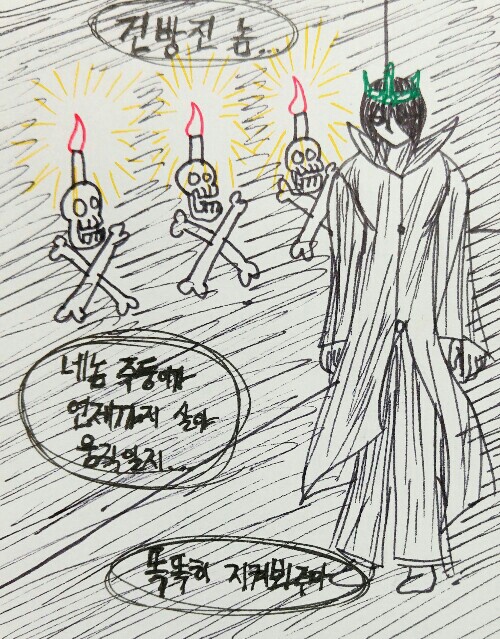 건방진 놈...
네놈 주둥이가
언제까지 살아
움직일지...
똑똑히 지켜봐주마